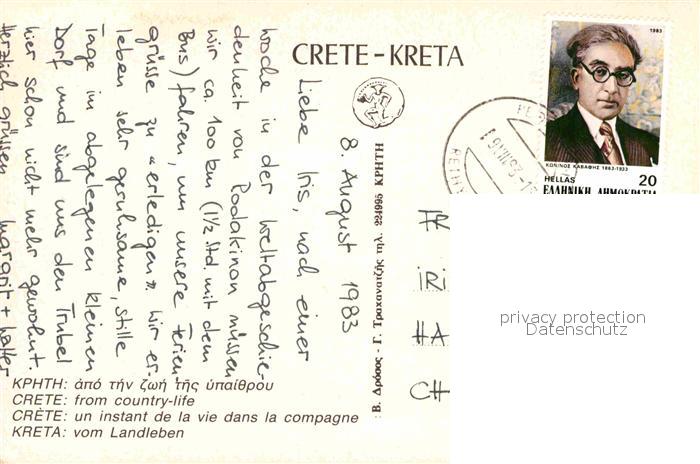 CRETE-KRETA
8. August 1983
Liebe Iris, nach einer
Woche in der Weltabgeschie-
denheit von Rodakinon müssen
wir ca. 100 km (1½ Std. mit dem
Bus) fahren, um unsere Ferien
grüsse zu "erledigen". Wir er-
leben sehr geruhsame, stille
Tage im abgelegenen kleinen
Dorf und sind uns den Trubel
hier schon nicht mehr gewohnt.
Herzlich grüssen Margrit + Walter
ΚΡΗΤΗ: ἀπό τήν ζωή τῆς ὑπαίθρου
CRETE: from country-life
CRÈTE: un instant de la vie dans la compagne
KRETA: vom Landleben
Β. Δρόσος - Γ. Τραχανατζῆς τηλ. 224995 ΚΡΗΤΗ
1983
ΚΩΝ/ΝΟΣ ΚΑΒΑΦΗΣ 1863-1933
HELLAS 20
ΕΛΛΗΝΙΚΗ ΔΗΜΟΚΡΑΤΙΑ
FR
IRI
HA
CH
privacy protection
Datenschutz